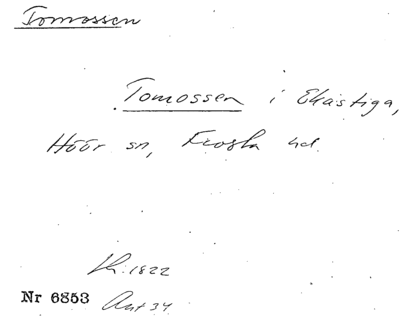 Tomossen
Tomossen i Ekastiga,
Höör sn, Frosta hd.
Lh. 1822
Nr 6853 Akt 34